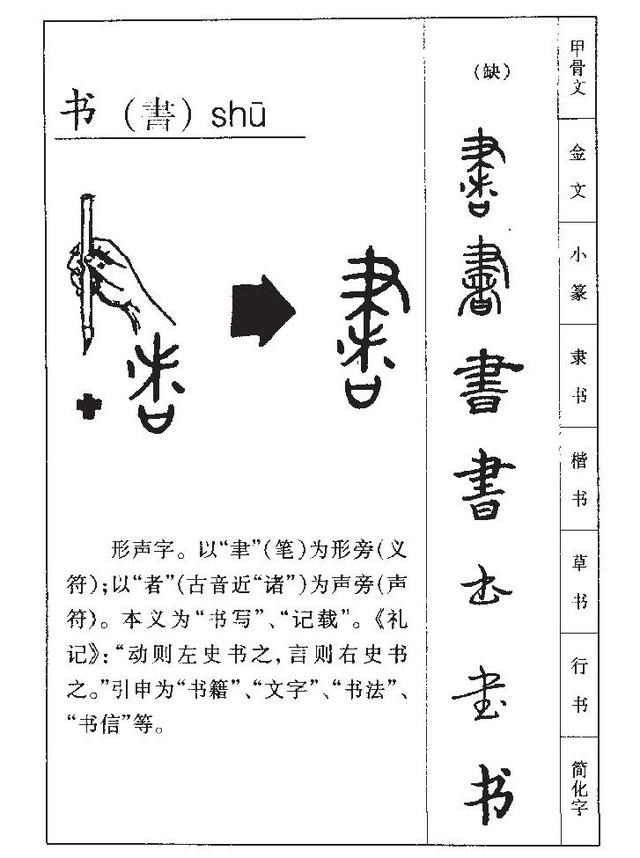 书（書）shū
形声字。以“聿”(笔)为形旁(义
符);以“者”(古音近“诸”)为声旁(声
符)。本义为“书写”、“记载”。《礼
记》:“动则左史书之,言则右史书
之。”引申为“书籍”、“文字”、“书法”、
“书信”等。
（缺）
甲骨文
書
金文
書
小篆
書
隶书
書
楷书
书
草书
書
行书
书
简化字